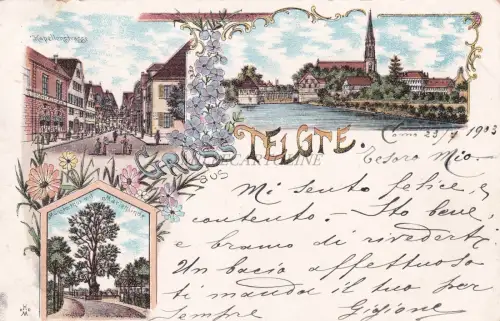 Kapellenstrasse
GRUSS
AUS
TELGTE.
Como 23/7 1903
Tesoro Mio
Mi sento felice, e
contento. - Sto bene,
e bramo di rivederti
Un bacio affettuoso
ti manda il tuo per
sempre Gigione